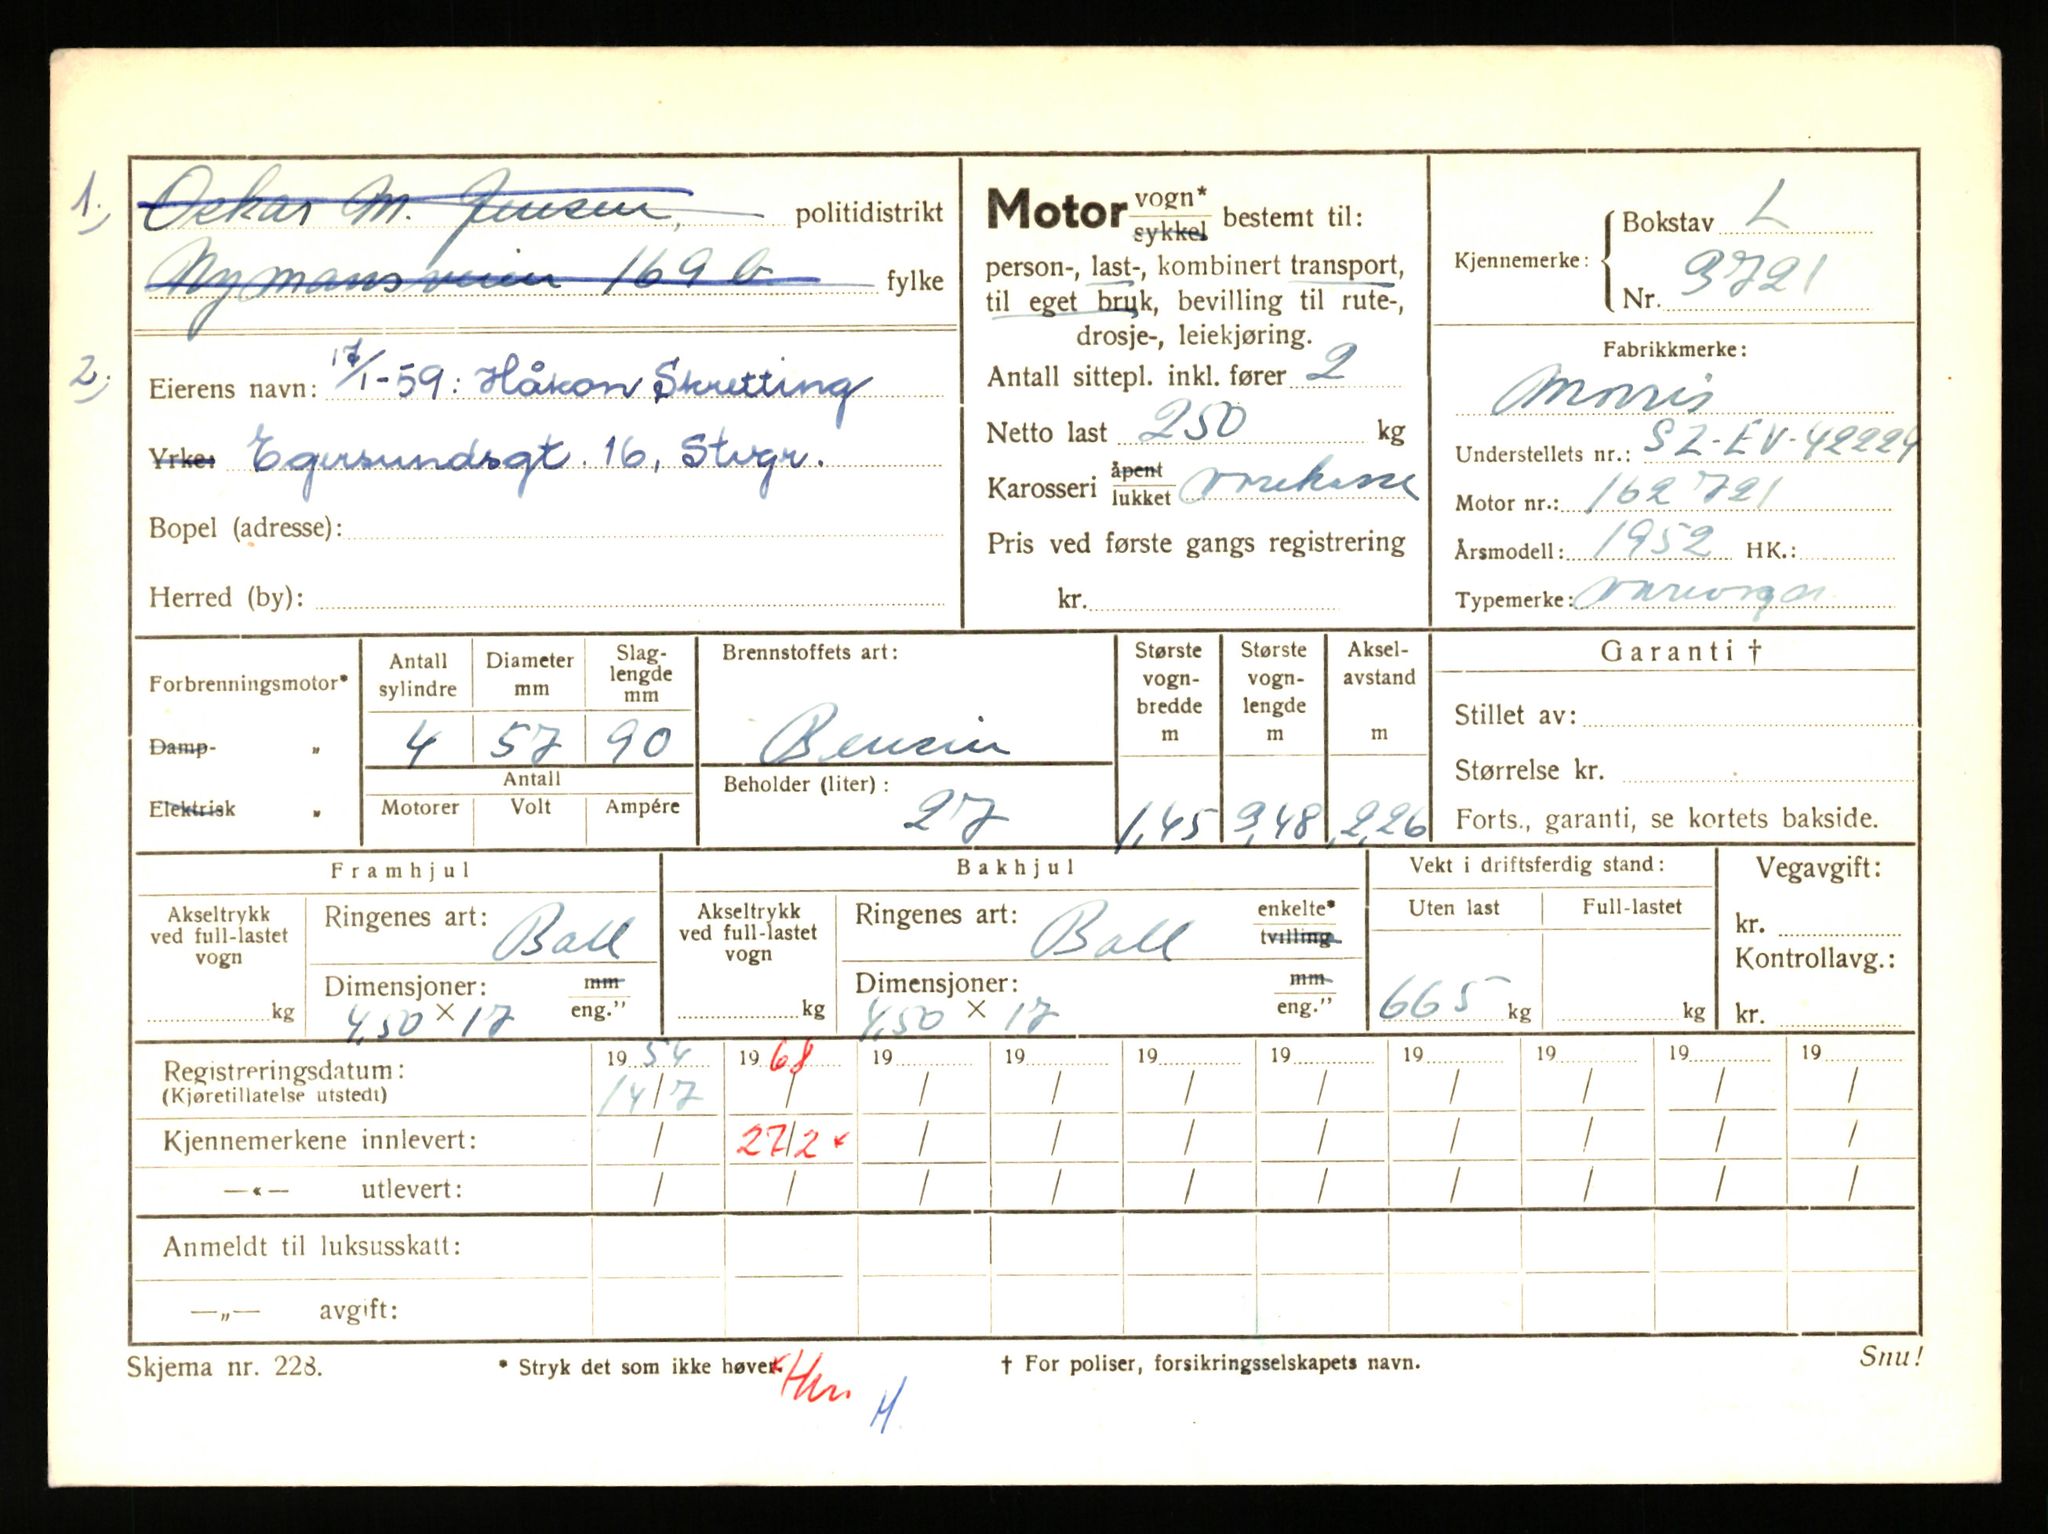 1.) Oskar M. Jensen, politidistrikt
Nymansveien 169 b. fylke
2.) Eierens navn: 17/1-59: Håkon Skretting
Yrke: Egersundsgt. 16, Stvgr.
Bopel (adresse):
Herred (by):
Motor vogn* sykkel bestemt til:
person-, last-, kombinert transport,
til eget bruk, bevilling til rute-,
drosje-, leiekjøring.
Antall sittepl. inkl. fører 2
Netto last 250 kg
Karosseri åpent lukket varekasse
Pris ved første gangs registrering
kr.
Kjennemerke: Bokstav L
Nr. 3721
Fabrikkmerke:
Morris
Understellets nr.: SZ-EV-42224
Motor nr.: 162721
Årsmodell: 1952 HK.:
Typemerke: varevogn
Forbrenningsmotor*
Damp- „
Elektrisk „
Antall sylindre Diameter mm Slag-lengde mm
4 57 90
Antall
Motorer Volt Ampére
Brennstoffets art:
Bensin
Beholder (liter):
27
Største vogn-bredde m Største vogn-lengde m Aksel-avstand m
1,45 3,48 2,26
Garanti †
Stillet av:
Størrelse kr.
Forts., garanti, se kortets bakside.
Framhjul
Akseltrykk ved full-lastet vogn
kg
Ringenes art: Ball
Dimensjoner: mm
4,50 × 17 eng.”
Bakhjul
Akseltrykk ved full-lastet vogn
kg
Ringenes art: Ball enkelte* tvilling
Dimensjoner: mm
4,50 × 17 eng.”
Vekt i driftsferdig stand:
Uten last Full-lastet
665 kg kg
Vegavgift:
kr.
Kontrollavg.:
kr.
19 54 19 68 19 19 19 19 19 19 19 19
Registreringsdatum: 14/7 / / / / / / / / /
(Kjøretillatelse utstedt)
Kjennemerkene innlevert: / 27/2 * / / / / / / / /
—«— utlevert: / / / / / / / / / /
Anmeldt til luksusskatt:
—„— avgift:
Skjema nr. 228. * Stryk det som ikke høver. † For poliser, forsikringsselskapets navn. Snu!
H